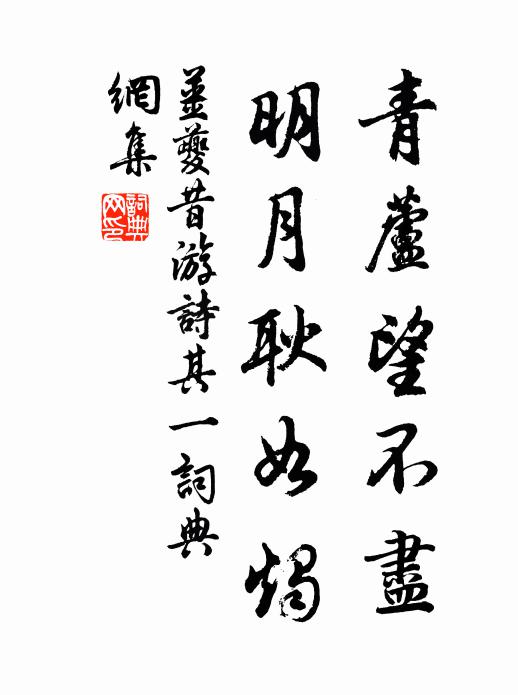 青蘆望不盡
明月耿如燭
姜夔昔游詩其一詞典
網集
詞典网印